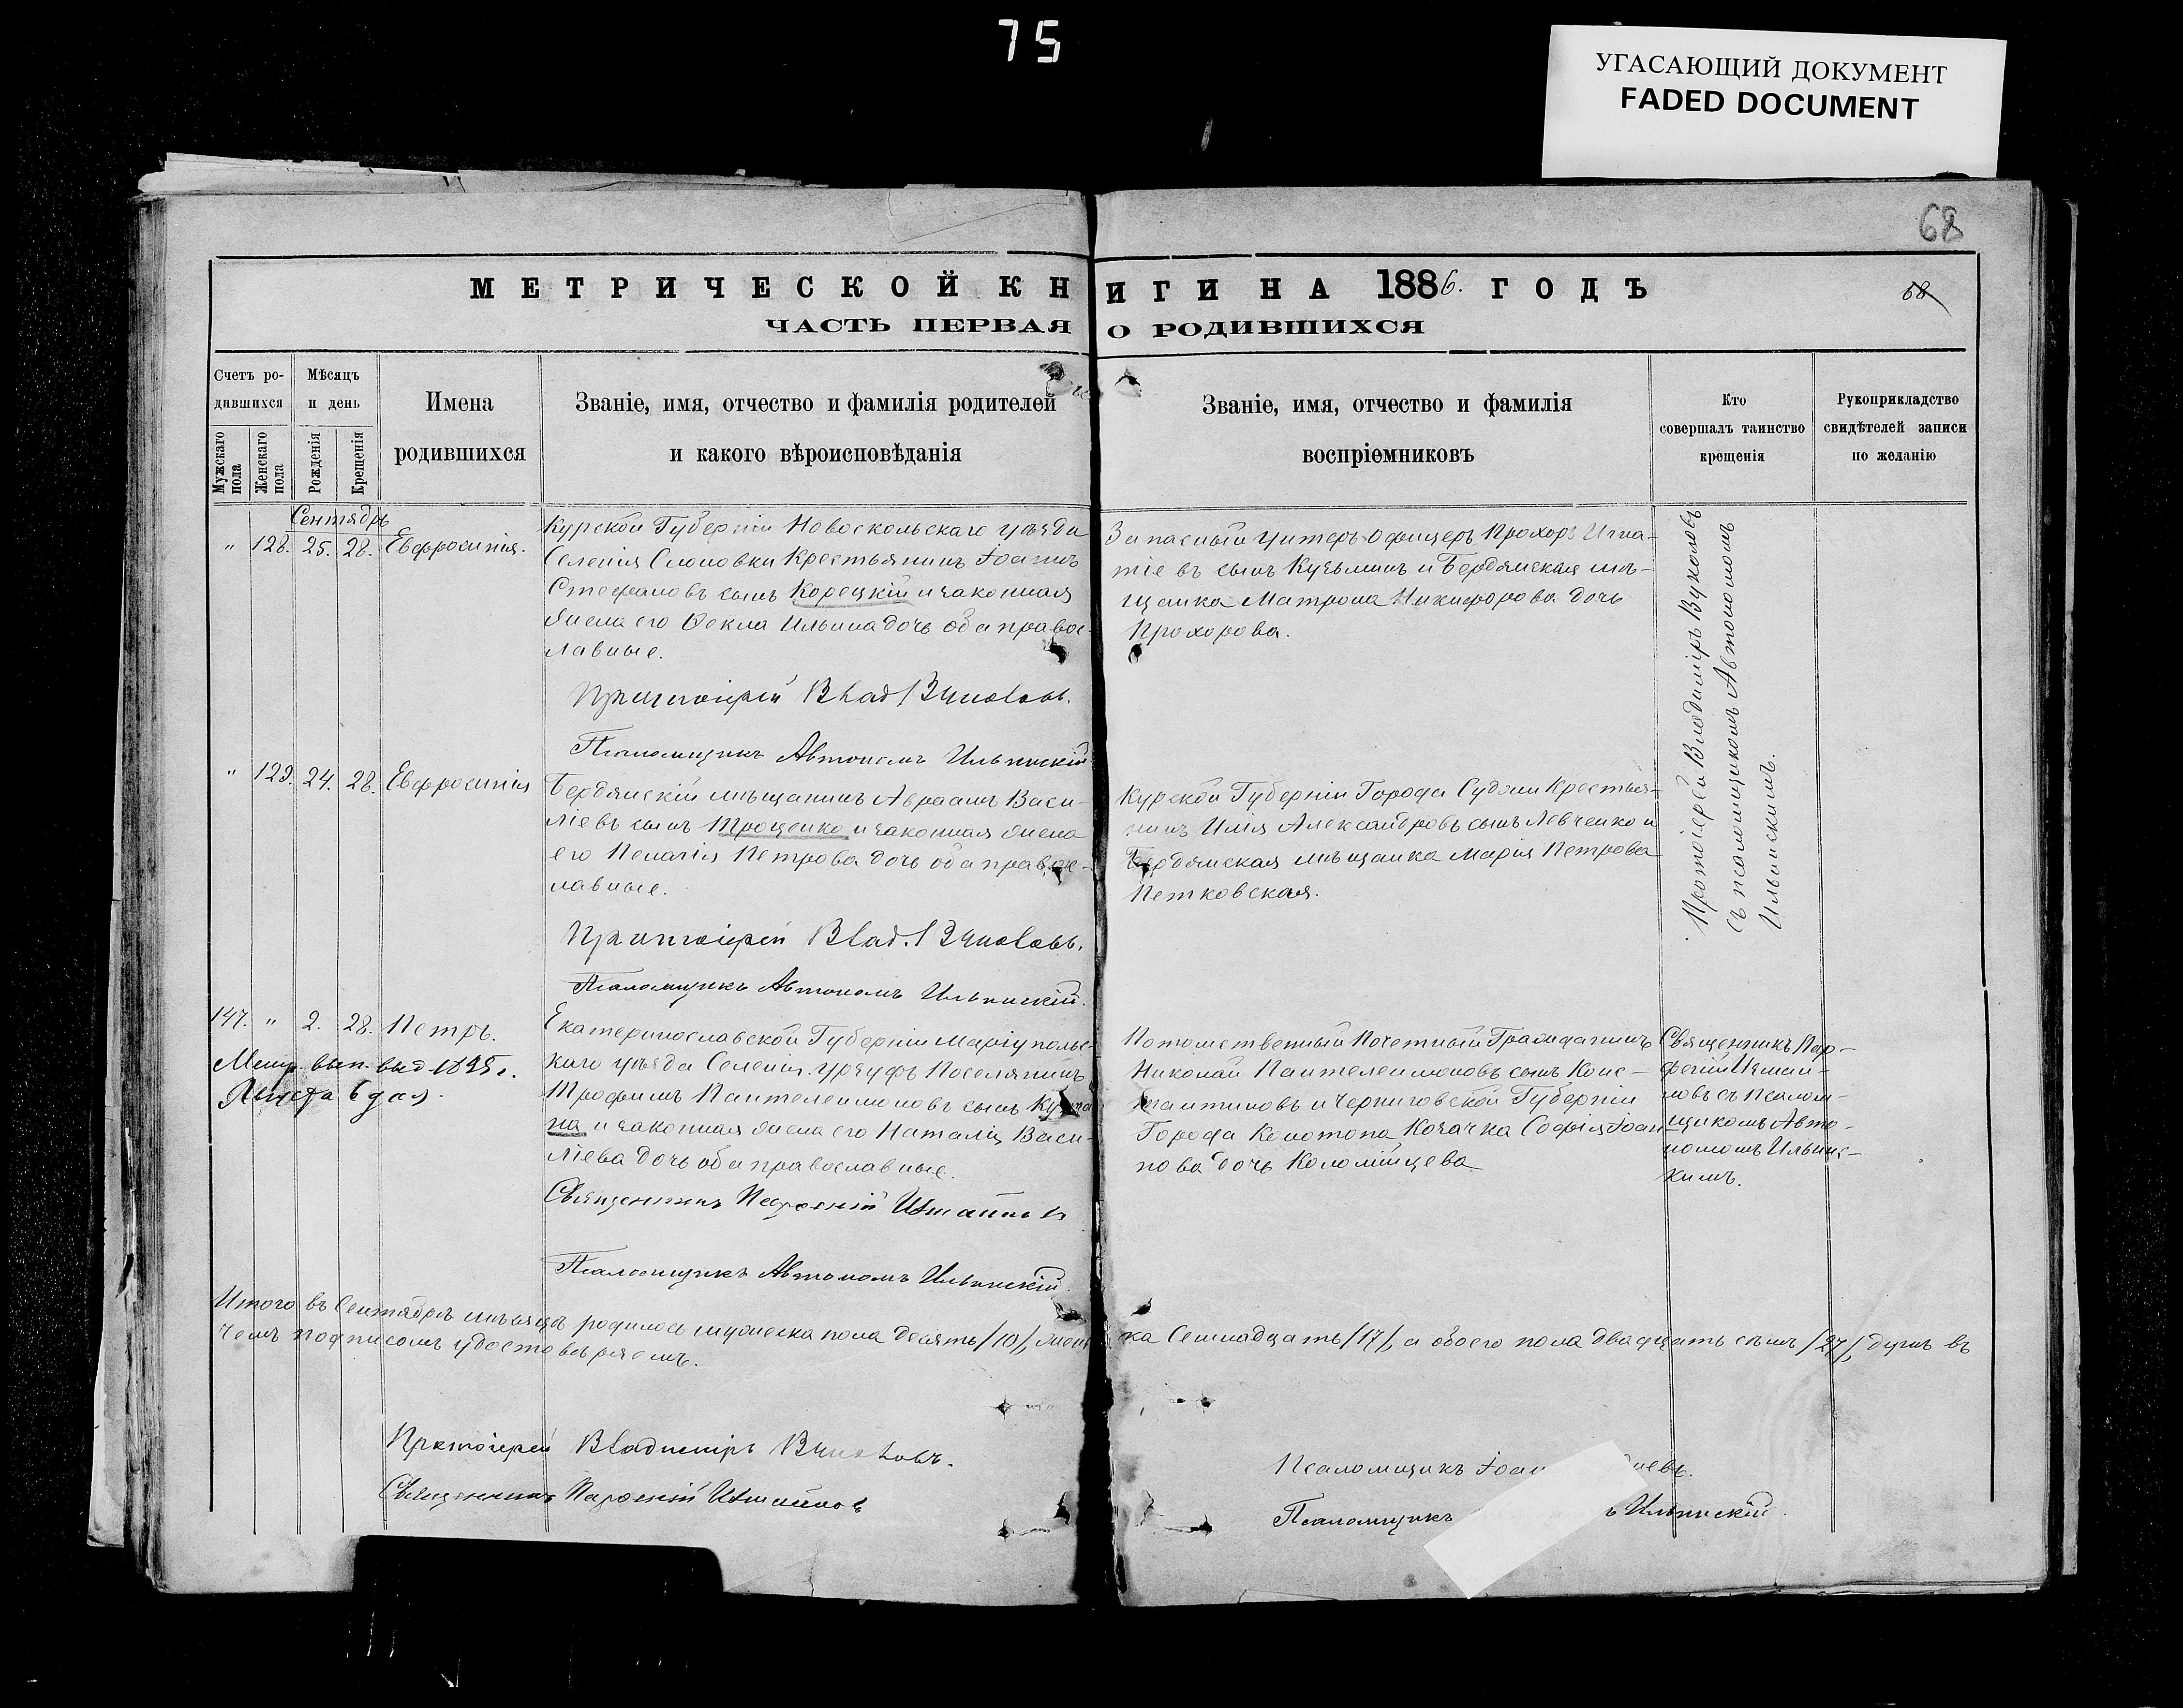 75
УГАСАЮЩИЙ ДОКУМЕНТ
FADED DOCUMENT
68
МЕТРИЧЕСКОЙ КНИГИ НА 1886. ГОДЪ
68
ЧАСТЬ ПЕРВАЯ О РОДИВШИХСЯ
Счетъ ро-
дившихся
Мужскаго пола
Женскаго пола
Мѣсяцъ
и день
Рожденія
Крещенія
Имена
родившихся
Званіе, имя, отчество и фамилія родителей
и какого вѣроисповѣданія
Званіе, имя, отчество и фамилія
воспріемниковъ
Кто
совершалъ таинство
крещенія
Рукоприкладство
свидѣтелей записи
по желанію
Сентябрь
" 128. 25. 28. Евфросинія.
Курской Губерніи Новоскольскаго уѣзда
Селенія Слоновки Крестьянинъ Іоаннъ
Стефановъ сынъ Корецкій и законная
жена его Ѳекла Ильина дочь оба правос-
лавные.
Протоіерей Влад.
Псаломщикъ Автономъ Ильинскій
Запасный унтеръ-офицеръ Прохоръ Игна-
тіевъ сынъ Кузьминъ и Бердянская мѣ-
щанка Матрона Никифорова дочь
Прохорова.
Протоіерей Владиміръ
съ псаломщикомъ Автономомъ
Ильинскимъ.
" 129. 24. 28. Евфросинія
Бердянскій мѣщанинъ Авраамъ Васи-
ліевъ сынъ Троценко и законная жена
его Пелагія Петрова дочь оба правос-
лавные.
Протоіерей Влад.
Псаломщикъ Автономъ Ильинскій.
Курской Губерніи Города Суджи Крестья-
нинъ Илія Александровъ сынъ Левченко и
Бердянская мѣщанка Марія Петрова
Петковская.
147. " 2. 28. Петръ.
Метр. вып. выд 1895 г.
6 дня
Екатеринославской Губерніи Маріупольс-
каго уѣзда Селенія Урзуфъ Поселянинъ
Трофимъ Пантелеимоновъ сынъ
на и законная жена его Наталія Васи-
ліева дочь оба православные.
Священникъ Парѳеній
Псаломщикъ Автономъ Ильинскій.
Потомственный Почетный Гражданинъ
Николай Пантелеимоновъ сынъ Конс-
тантиновъ и Черниговской Губерніи
Города Конотопа Козачка Софія Іоан-
нова дочь Коломійцева
Священникъ Пар-
ѳеній
новъ съ псалом-
щикомъ Авто-
номомъ Ильинс-
кимъ.
Итого въ Сентябрѣ мѣсяцѣ родилось мужеска пола десять /10/, женска Семнадцать /17/, а обоего пола двадцать семь /27/, душъ въ
чемъ подписомъ удостовѣряемъ.
Протоіерей Владиміръ
Священникъ Парѳеній
Псаломщикъ
Псаломщикъ Ильинскій